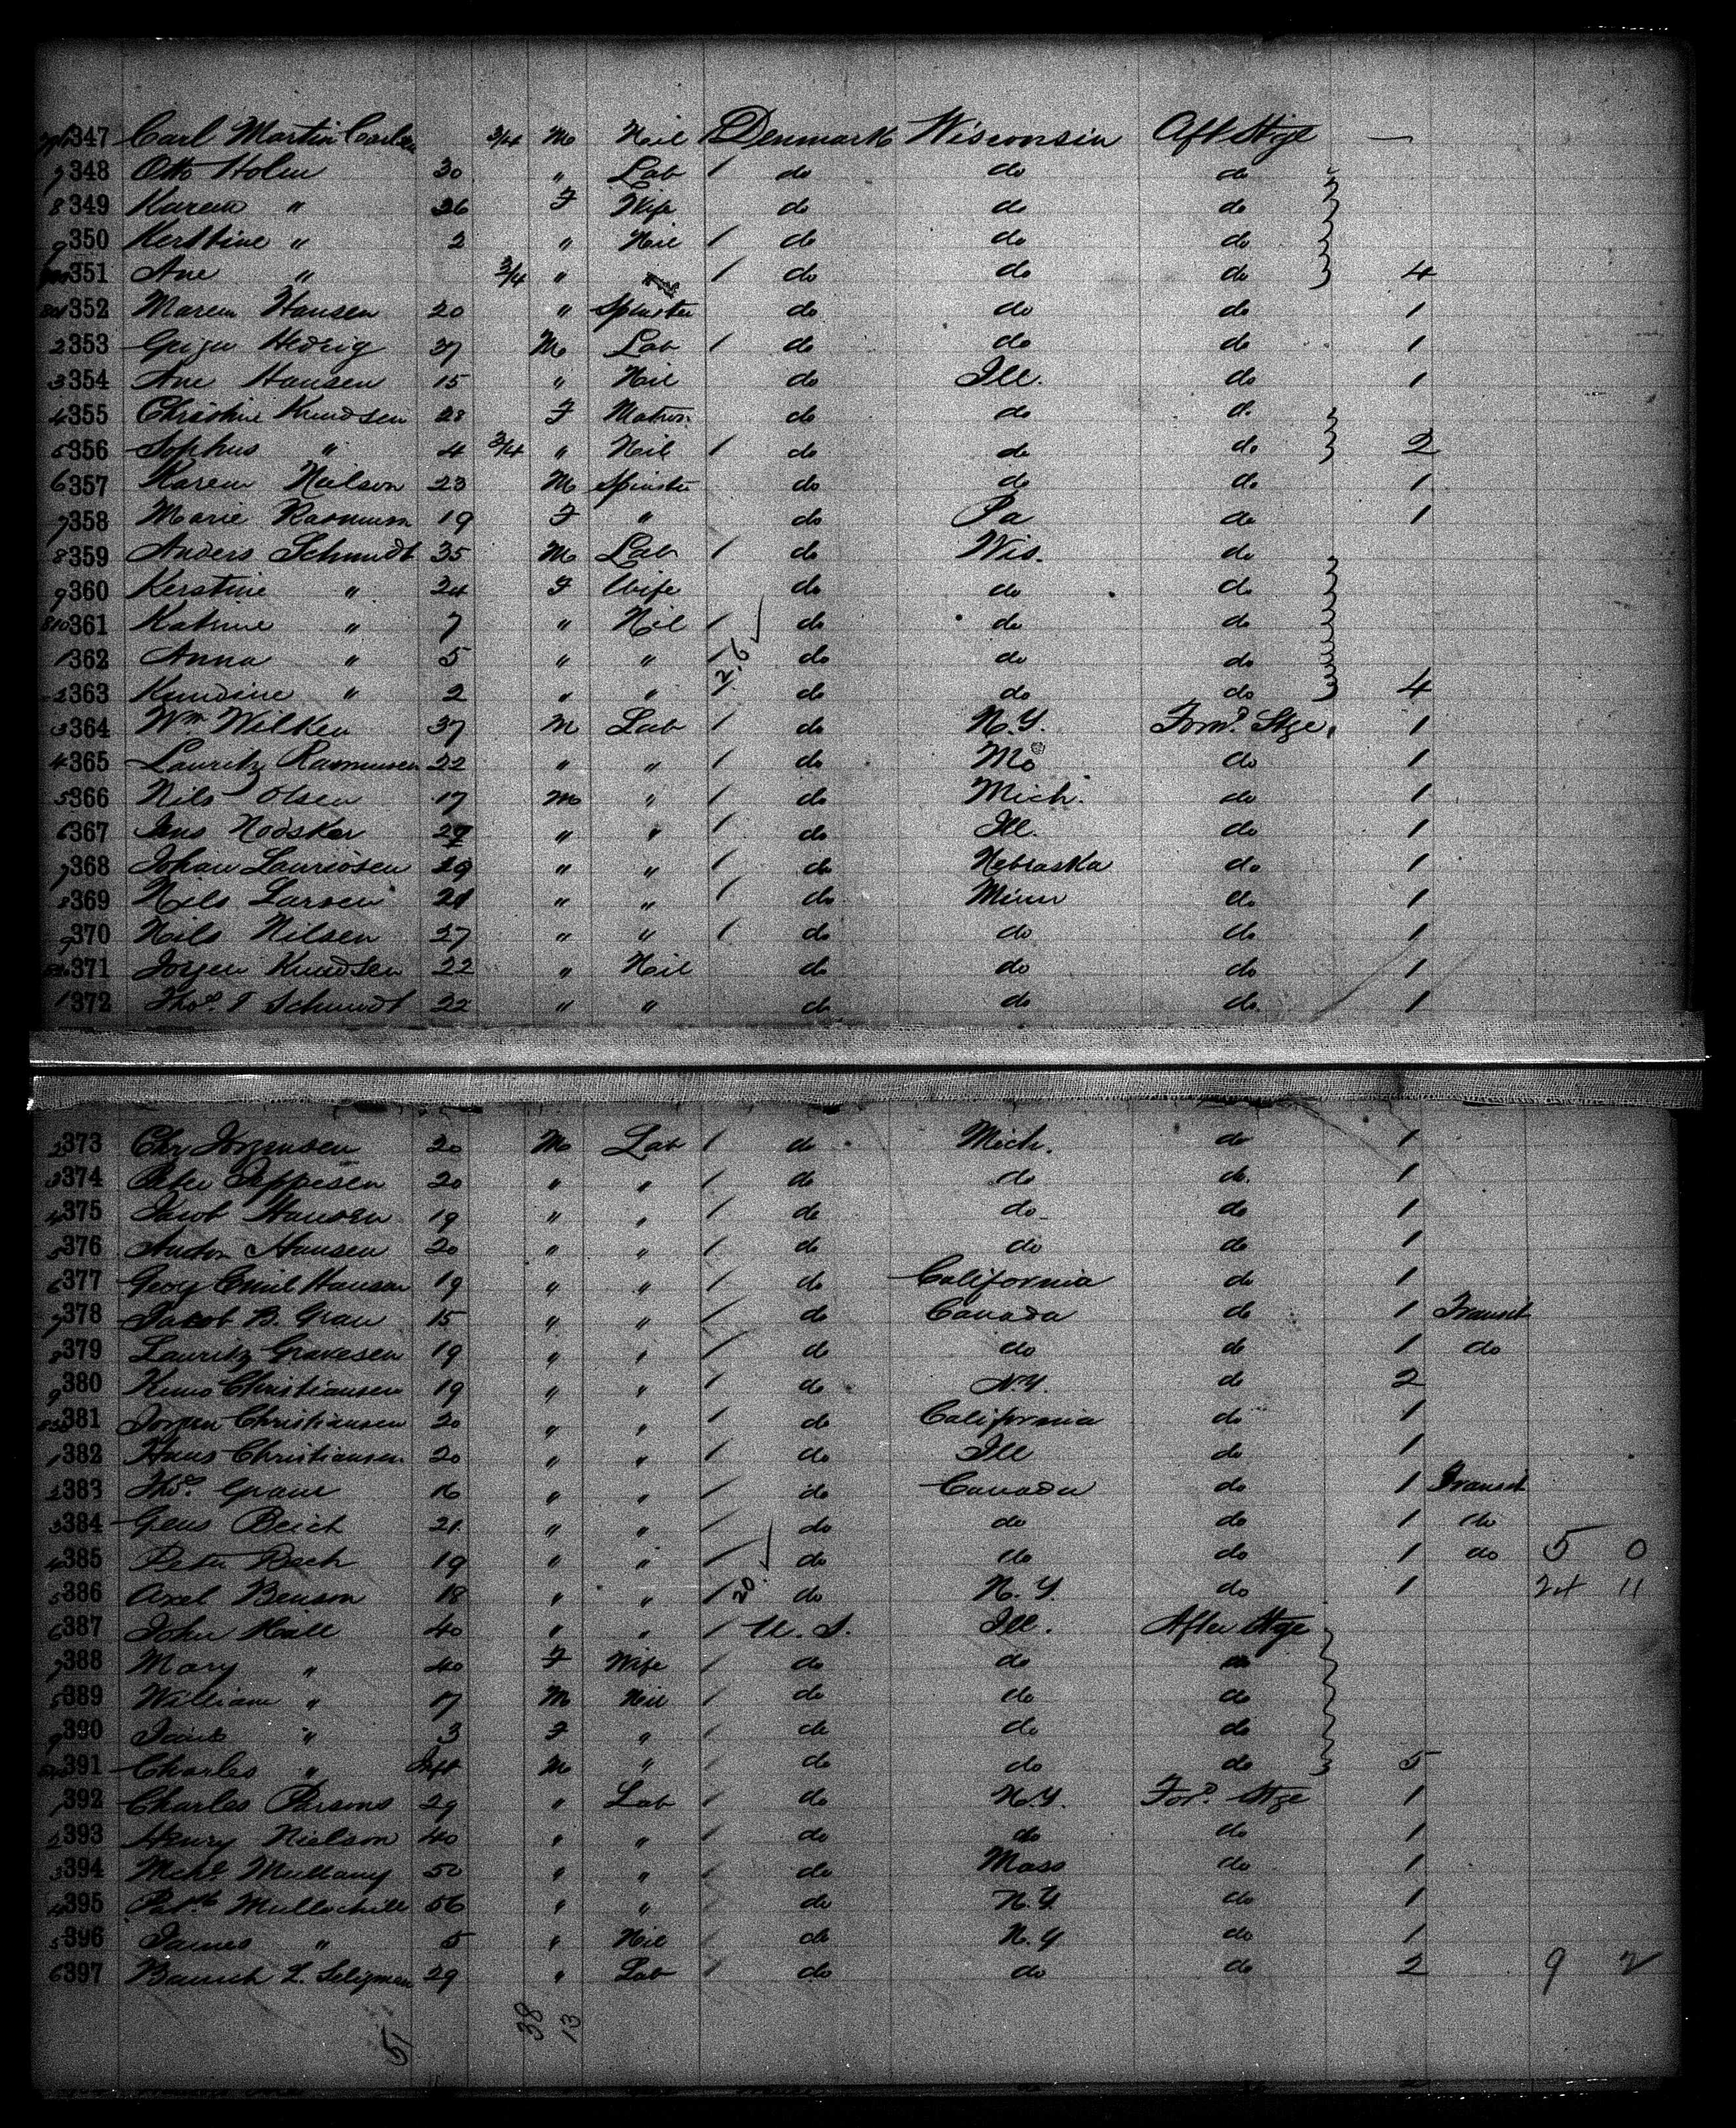 347 Carl Martin Carlsen 3/4 M Nil 1 Denmark Wisconsin Aft Stge —
348 Otto Holm 30 " Lab 1 do do do
349 Karen " 26 F Wife do do do
350 Kerstine " 2 " Nil 1 do do do
351 Ane " 3/4 " 1 do do do 4
352 Maren Hansen 20 " Spinster do do do 1
353 Hedrig 37 M Lab 1 do do do 1
354 Ane Hansen 15 " Nil do Ill. do 1
355 Christine Knudsen 28 F Matron do do do
356 Sophus " 4 3/4 " Nil 1 do do do 2
357 Karen Nielson 23 M Spinster do do do 1
358 Marie Rasmusn 19 F " do Pa do 1
359 Anders Schmidt 35 M Lab 1 do Wis. do
360 Kerstine " 24 F Wife do do do
361 Katrine " 7 " Nil 1 do do do
362 Anna " 5 " " 1 do do do
363 Kundine " 2 " " 1 2.6 ✓ do do do 4
364 Wm Wilken 37 M Lab 1 do N.Y. Forwd Stge 1
365 Lauritz Rasmussen 22 " " 1 do Mo do 1
366 Nils Olsen 17 M " 1 do Mich. do 1
367 Jens Nodsker 27 " " 1 do Ill. do 1
368 Johan Lauridsen 29 " " 1 do Nebraska do 1
369 Nils Larsen 21 " " 1 do Minn do 1
370 Nils Nilsen 27 " " 1 do do do 1
371 Jorgen Knudsen 22 " Nil do do do 1
372 Thos. T Schmidt 22 " " do do do 1
373 Chr Jorgensen 20 M Lab 1 do Mich. do 1
374 Peter Jeppesen 20 " " 1 do do do 1
375 Jacob Hansen 19 " " 1 do do do 1
376 Anton Hansen 20 " " 1 do do do 1
377 Georg Emil Hansen 19 " " 1 do California do 1
378 Jacob B. Grau 15 " " 1 do Canada do 1 Transit
379 Lauritz Gravesen 19 " " 1 do do do 1 do
380 Christiansen 19 " " 1 do N.Y. do 2
381 Jorgen Christiansen 20 " " 1 do California do 1
382 Hans Christiansen 20 " " 1 do Ill do 1
383 Thos. Graur 16 " " 1 do Canada do 1 Transit
384 Gens Beich 21 " " 1 do do do 1 do
385 Peter Rech 19 " " 1 do do do 1 do 5 0
386 Axel Benson 18 " " 1 20 ✓ do N.Y. do 1 24 11
387 John Hall 40 " " 1 U.S. Ill. After Stge
388 Mary " 40 F Wife 1 do do do
389 William " 17 M Nil 1 do do do
390 " 3 F " 1 do do do
391 Charles " Inft M " 1 do do do 5
392 Charles Parsons 29 " Lab 1 do N.Y. Ford. Stge 1
393 Henry Nielson 40 " " 1 do do do 1
394 Mchl Mullany 50 " " 1 do Mass do 1
395 Patk 56 " " do N.Y. do 1
396 James " 5 " Nil 1 do N.Y. do 1
397 L. Seligman 29 " Lab 1 do do do 2 9 2
51 38 13